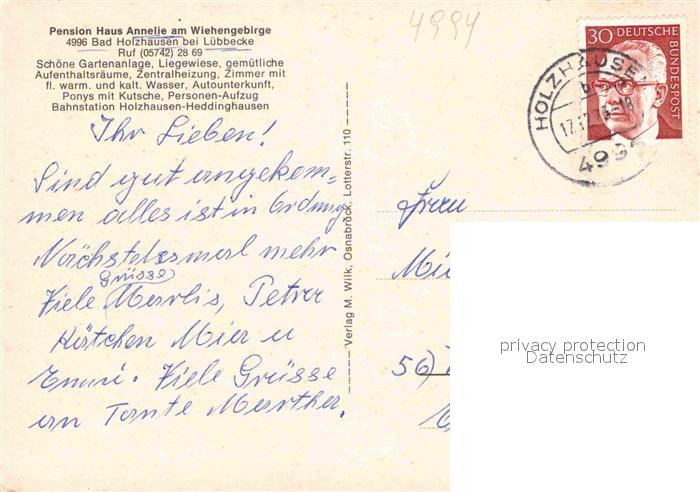 Pension Haus Annelie am Wiehengebirge
4996 Bad Holzhausen bei Lübbecke
Ruf (05742) 28 69
Schöne Gartenanlage, Liegewiese, gemütliche
Aufenthaltsräume, Zentralheizung, Zimmer mit
fl. warm. und kalt. Wasser, Autounterkunft,
Ponys mit Kutsche, Personen-Aufzug
Bahnstation Holzhausen-Heddinghausen
4994
30 DEUTSCHE
BUNDESPOST
HOLZHAUSE
b
17.
-18
Ihr Lieben!
Sind gut angekom=
men alles ist in Ordnung
Nächstesmal mehr
Grüsse
Viele
Petra
Kätchen Mier u
Viele Grüsse
an Tante Marther.
Verlag M. Wilk, Osnabrück, Lotterstr. 110
Frau
56)
privacy protection
Datenschutz